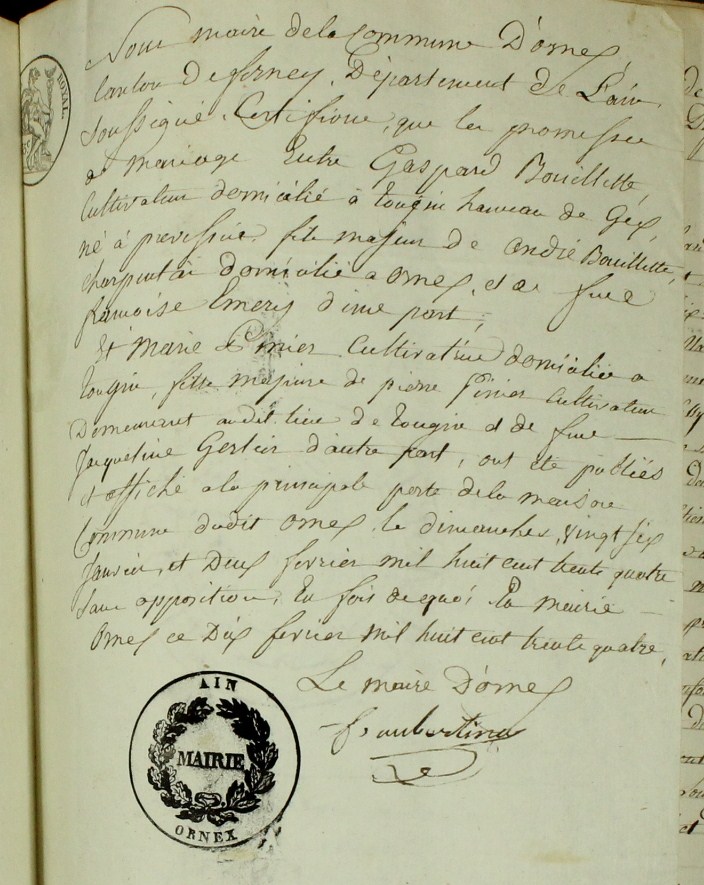 Nous maire de la Commune D'ornex
Canton De ferney, Département de L'ain
Soussigné, Certifions, que les promesses
de mariage Entre Gaspard Bouillette,
Cultivateur domicilié à tougin hameau de Gex,
né à prevessin fils majeur de andré Bouillette,
charpentier domicilié a ornex, et de feue
francoise Emery d'une part,
Et Marie Pinier Cultivatrice domiciliée a
tougin, fille majeure de pierre Pinier Cultivateur
Demeurant audit lieu de tougin et de feue
Jacqueline Gertier d'autre part, ont été publiés
et affiché a la principale porte de la maison
Commune dudit ornex le dimanches, vingt six
Janvier, et Deux fevrier mil huit cent trente quatre
sans opposition, En fois de quoi En mairie
ornex ce Dix fevrier mil huit cent trente quatre,
Le maire D'ornex
ROYAL.
AIN
MAIRIE
ORNEX